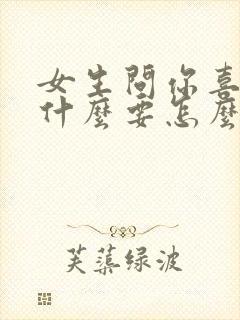 女生問你喜
什麼要怎麼
芙蕖绿波